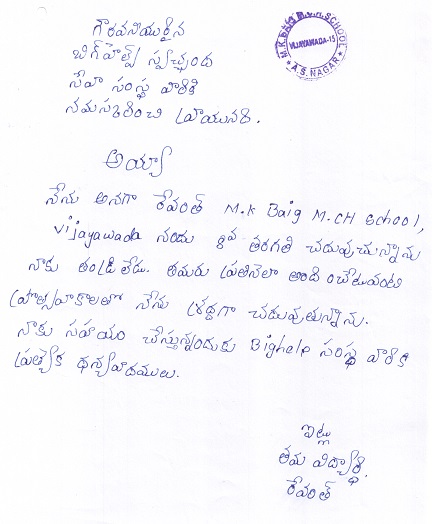 గౌరవనీయులైన
బిగ్‌హెల్ప్ స్వచ్ఛంద
సేవా సంస్థ వారికి
నమస్కరించి వ్రాయునది.
M.K. BAIG M.C.H. SCHOOL
VIJAYAWADA-15
★ A.S. NAGAR ★
అయ్యా
నేను అనగా రేవంత్ M.K Baig M.CH School,
Vijayawada నందు 8వ తరగతి చదువుచున్నాను
నాకు తండ్రి లేడు. తమరు ప్రతినెలా అందించేటువంటి
ప్రోత్సాహకాలతో నేను శ్రద్ధగా చదువుతున్నాను.
నాకు సహాయం చేస్తున్నందుకు Bighelp సంస్థ వారికి
ప్రత్యేక ధన్యవాదములు.
ఇట్లు
తమ విద్యార్థి.
రేవంత్